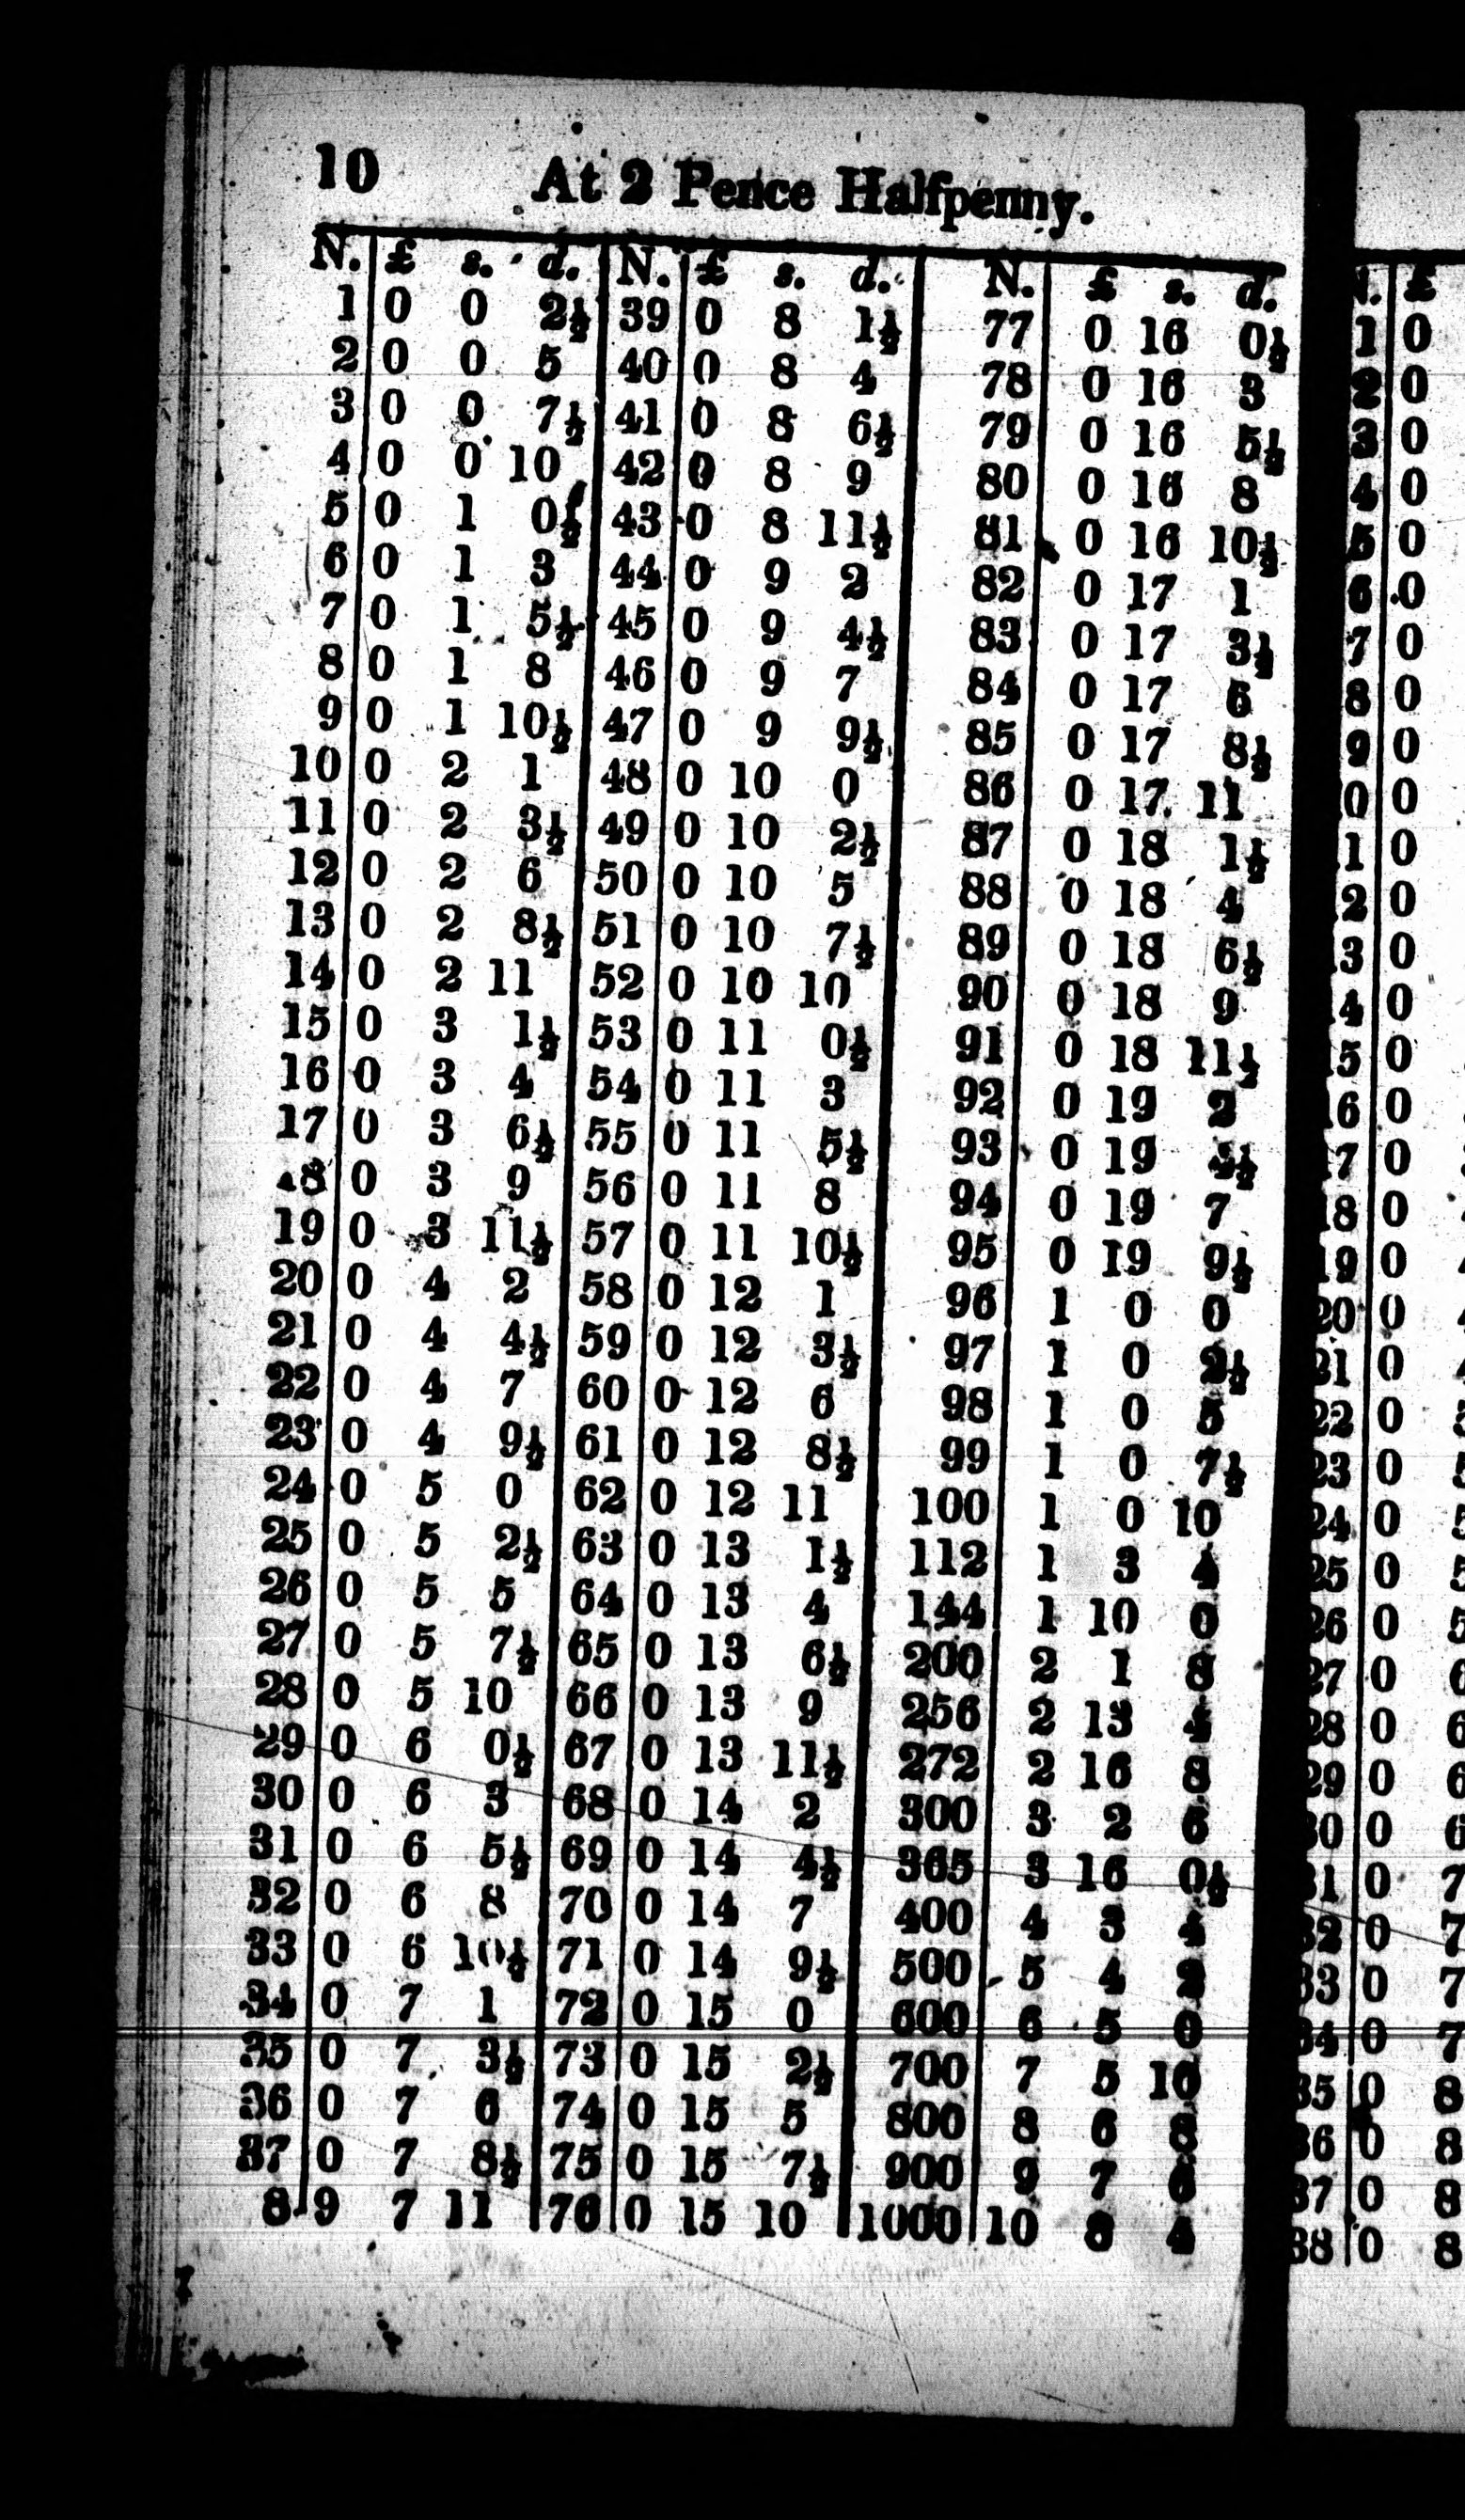 10 At 2 Pence Halfpenny.
N. £ s. d. N. £ s. d. N. £ s. d.
1 0 0 2½ 39 0 8 1½ 77 0 16 0½
2 0 0 5 40 0 8 4 78 0 16 3
3 0 0 7½ 41 0 8 6½ 79 0 16 5½
4 0 0 10 42 0 8 9 80 0 16 8
5 0 1 0½ 43 0 8 11½ 81 0 16 10½
6 0 1 3 44 0 9 2 82 0 17 1
7 0 1 5½ 45 0 9 4½ 83 0 17 3½
8 0 1 8 46 0 9 7 84 0 17 6
9 0 1 10½ 47 0 9 9½ 85 0 17 8½
10 0 2 1 48 0 10 0 86 0 17 11
11 0 2 3½ 49 0 10 2½ 87 0 18 1½
12 0 2 6 50 0 10 5 88 0 18 4
13 0 2 8½ 51 0 10 7½ 89 0 18 6½
14 0 2 11 52 0 10 10 90 0 18 9
15 0 3 1½ 53 0 11 0½ 91 0 18 11½
16 0 3 4 54 0 11 3 92 0 19 2
17 0 3 6½ 55 0 11 5½ 93 0 19 4½
18 0 3 9 56 0 11 8 94 0 19 7
19 0 3 11½ 57 0 11 10½ 95 0 19 9½
20 0 4 2 58 0 12 1 96 1 0 0
21 0 4 4½ 59 0 12 3½ 97 1 0 2½
22 0 4 7 60 0 12 6 98 1 0 5
23 0 4 9½ 61 0 12 8½ 99 1 0 7½
24 0 5 0 62 0 12 11 100 1 0 10
25 0 5 2½ 63 0 13 1½ 112 1 3 4
26 0 5 5 64 0 13 4 144 1 10 0
27 0 5 7½ 65 0 13 6½ 200 2 1 8
28 0 5 10 66 0 13 9 256 2 13 4
29 0 6 0½ 67 0 13 11½ 272 2 16 8
30 0 6 3 68 0 14 2 300 3 2 6
31 0 6 5½ 69 0 14 4½ 365 3 16 0½
32 0 6 8 70 0 14 7 400 4 3 4
33 0 6 10½ 71 0 14 9½ 500 5 4 2
34 0 7 1 72 0 15 0 600 6 5 0
35 0 7 3½ 73 0 15 2½ 700 7 5 10
36 0 7 6 74 0 15 5 800 8 6 8
37 0 7 8½ 75 0 15 7½ 900 9 7 6
8 9 7 11 76 0 15 10 1000 10 8 4